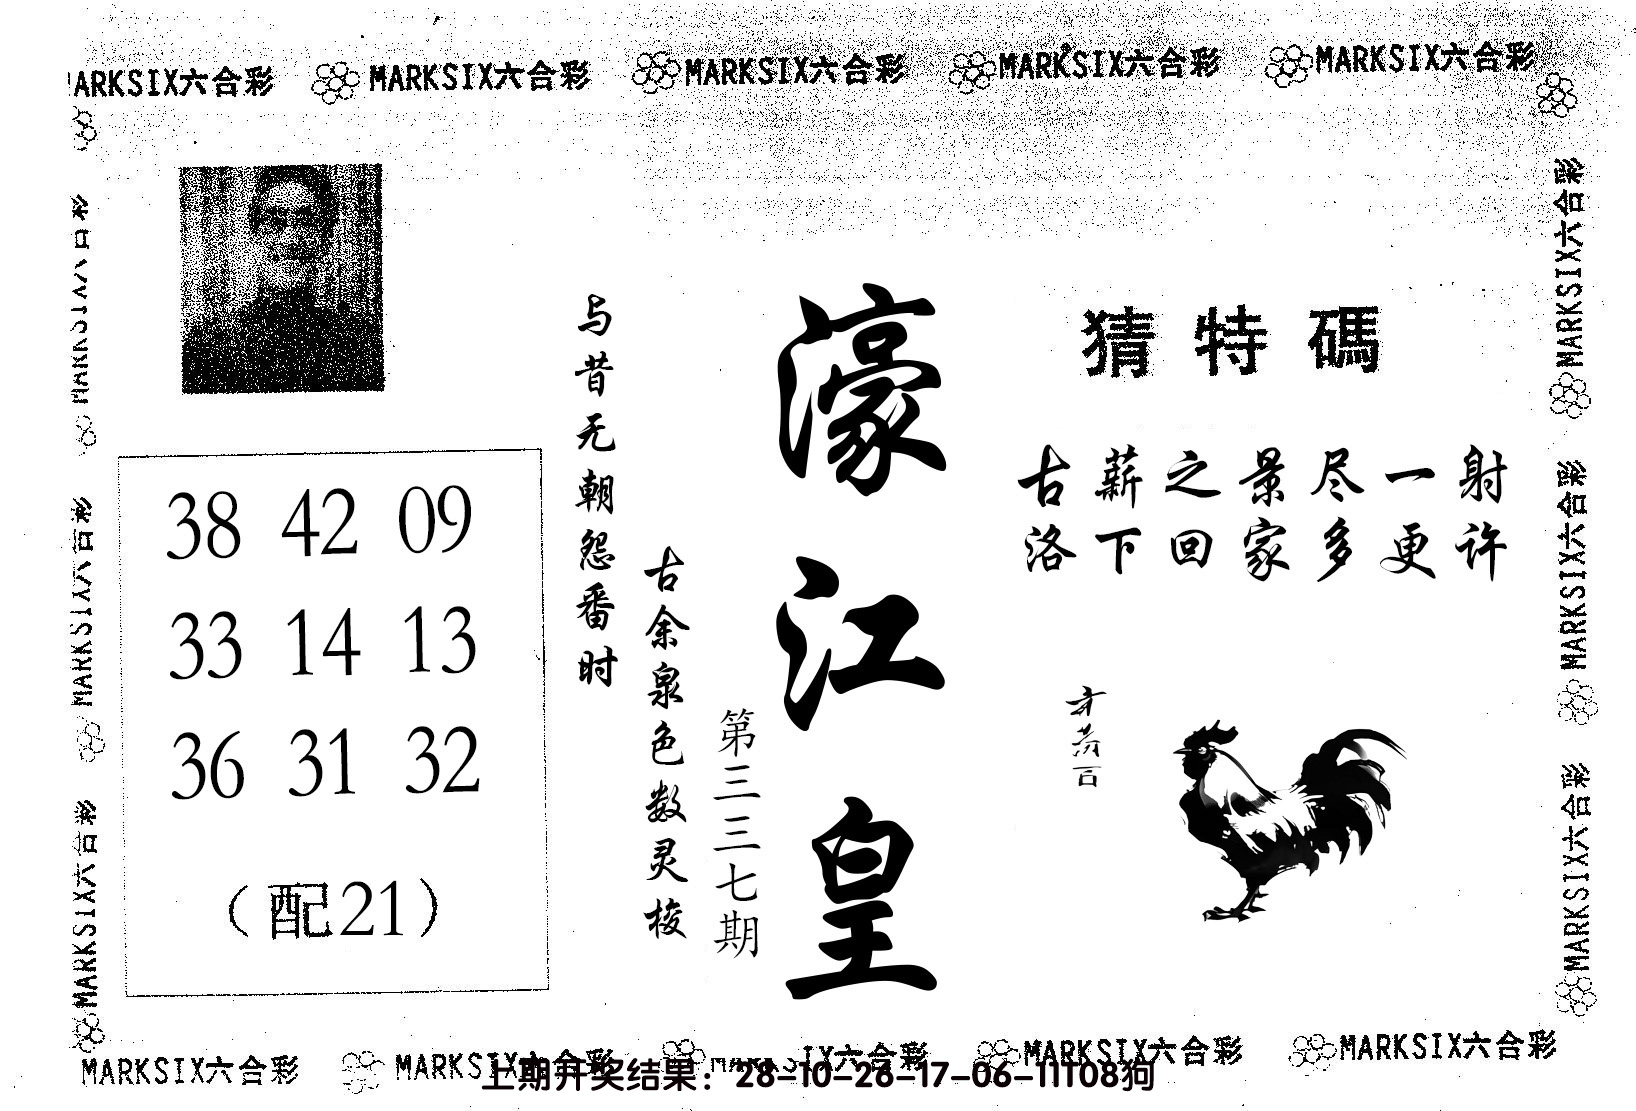 MARKSIX六合彩 MARKSIX六合彩 MARKSIX六合彩 MARKSIX六合彩 MARKSIX六合彩
猜特碼
古薪之景尽一射
洛下回家多更许
濠江皇
第三三七期
古余泉色数灵梭
与昔无朝怨番时
38 42 09
33 14 13
36 31 32
（配21）
MARKSIX六合彩
MARKSIX六合彩
MARKSIX六合彩
MARKSIX六合彩
MARKSIX六合彩
MARKSIX六合彩
MARKSIX六合彩 MARKSIX六合彩 MARKSIX六合彩 MARKSIX六合彩 MARKSIX六合彩
上期开奖结果：28-10-26-17-06-11T08狗